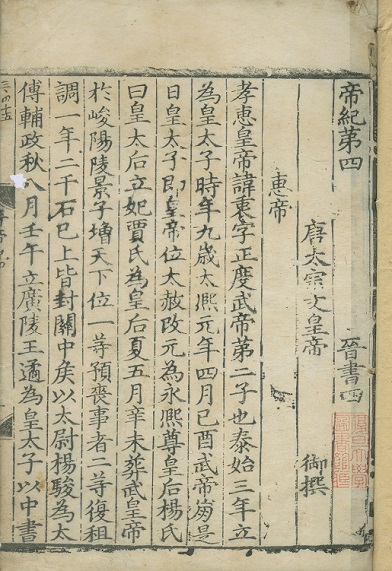 帝紀第四　晉書四
唐太宗文皇帝　御撰
惠帝
孝惠皇帝諱衷字正度武帝第二子也泰始三年立
為皇太子時年九歲太熙元年四月己酉武帝崩是
日皇太子即皇帝位大赦改元為永熙尊皇后楊氏
曰皇太后立妃賈氏為皇后夏五月辛未葬武皇帝
於峻陽陵景子增天下位一等預喪事者二等復租
調一年二千石已上皆封關中侯以太尉楊駿為太
傅輔政秋八月壬午立廣陵王遹為皇太子以中書